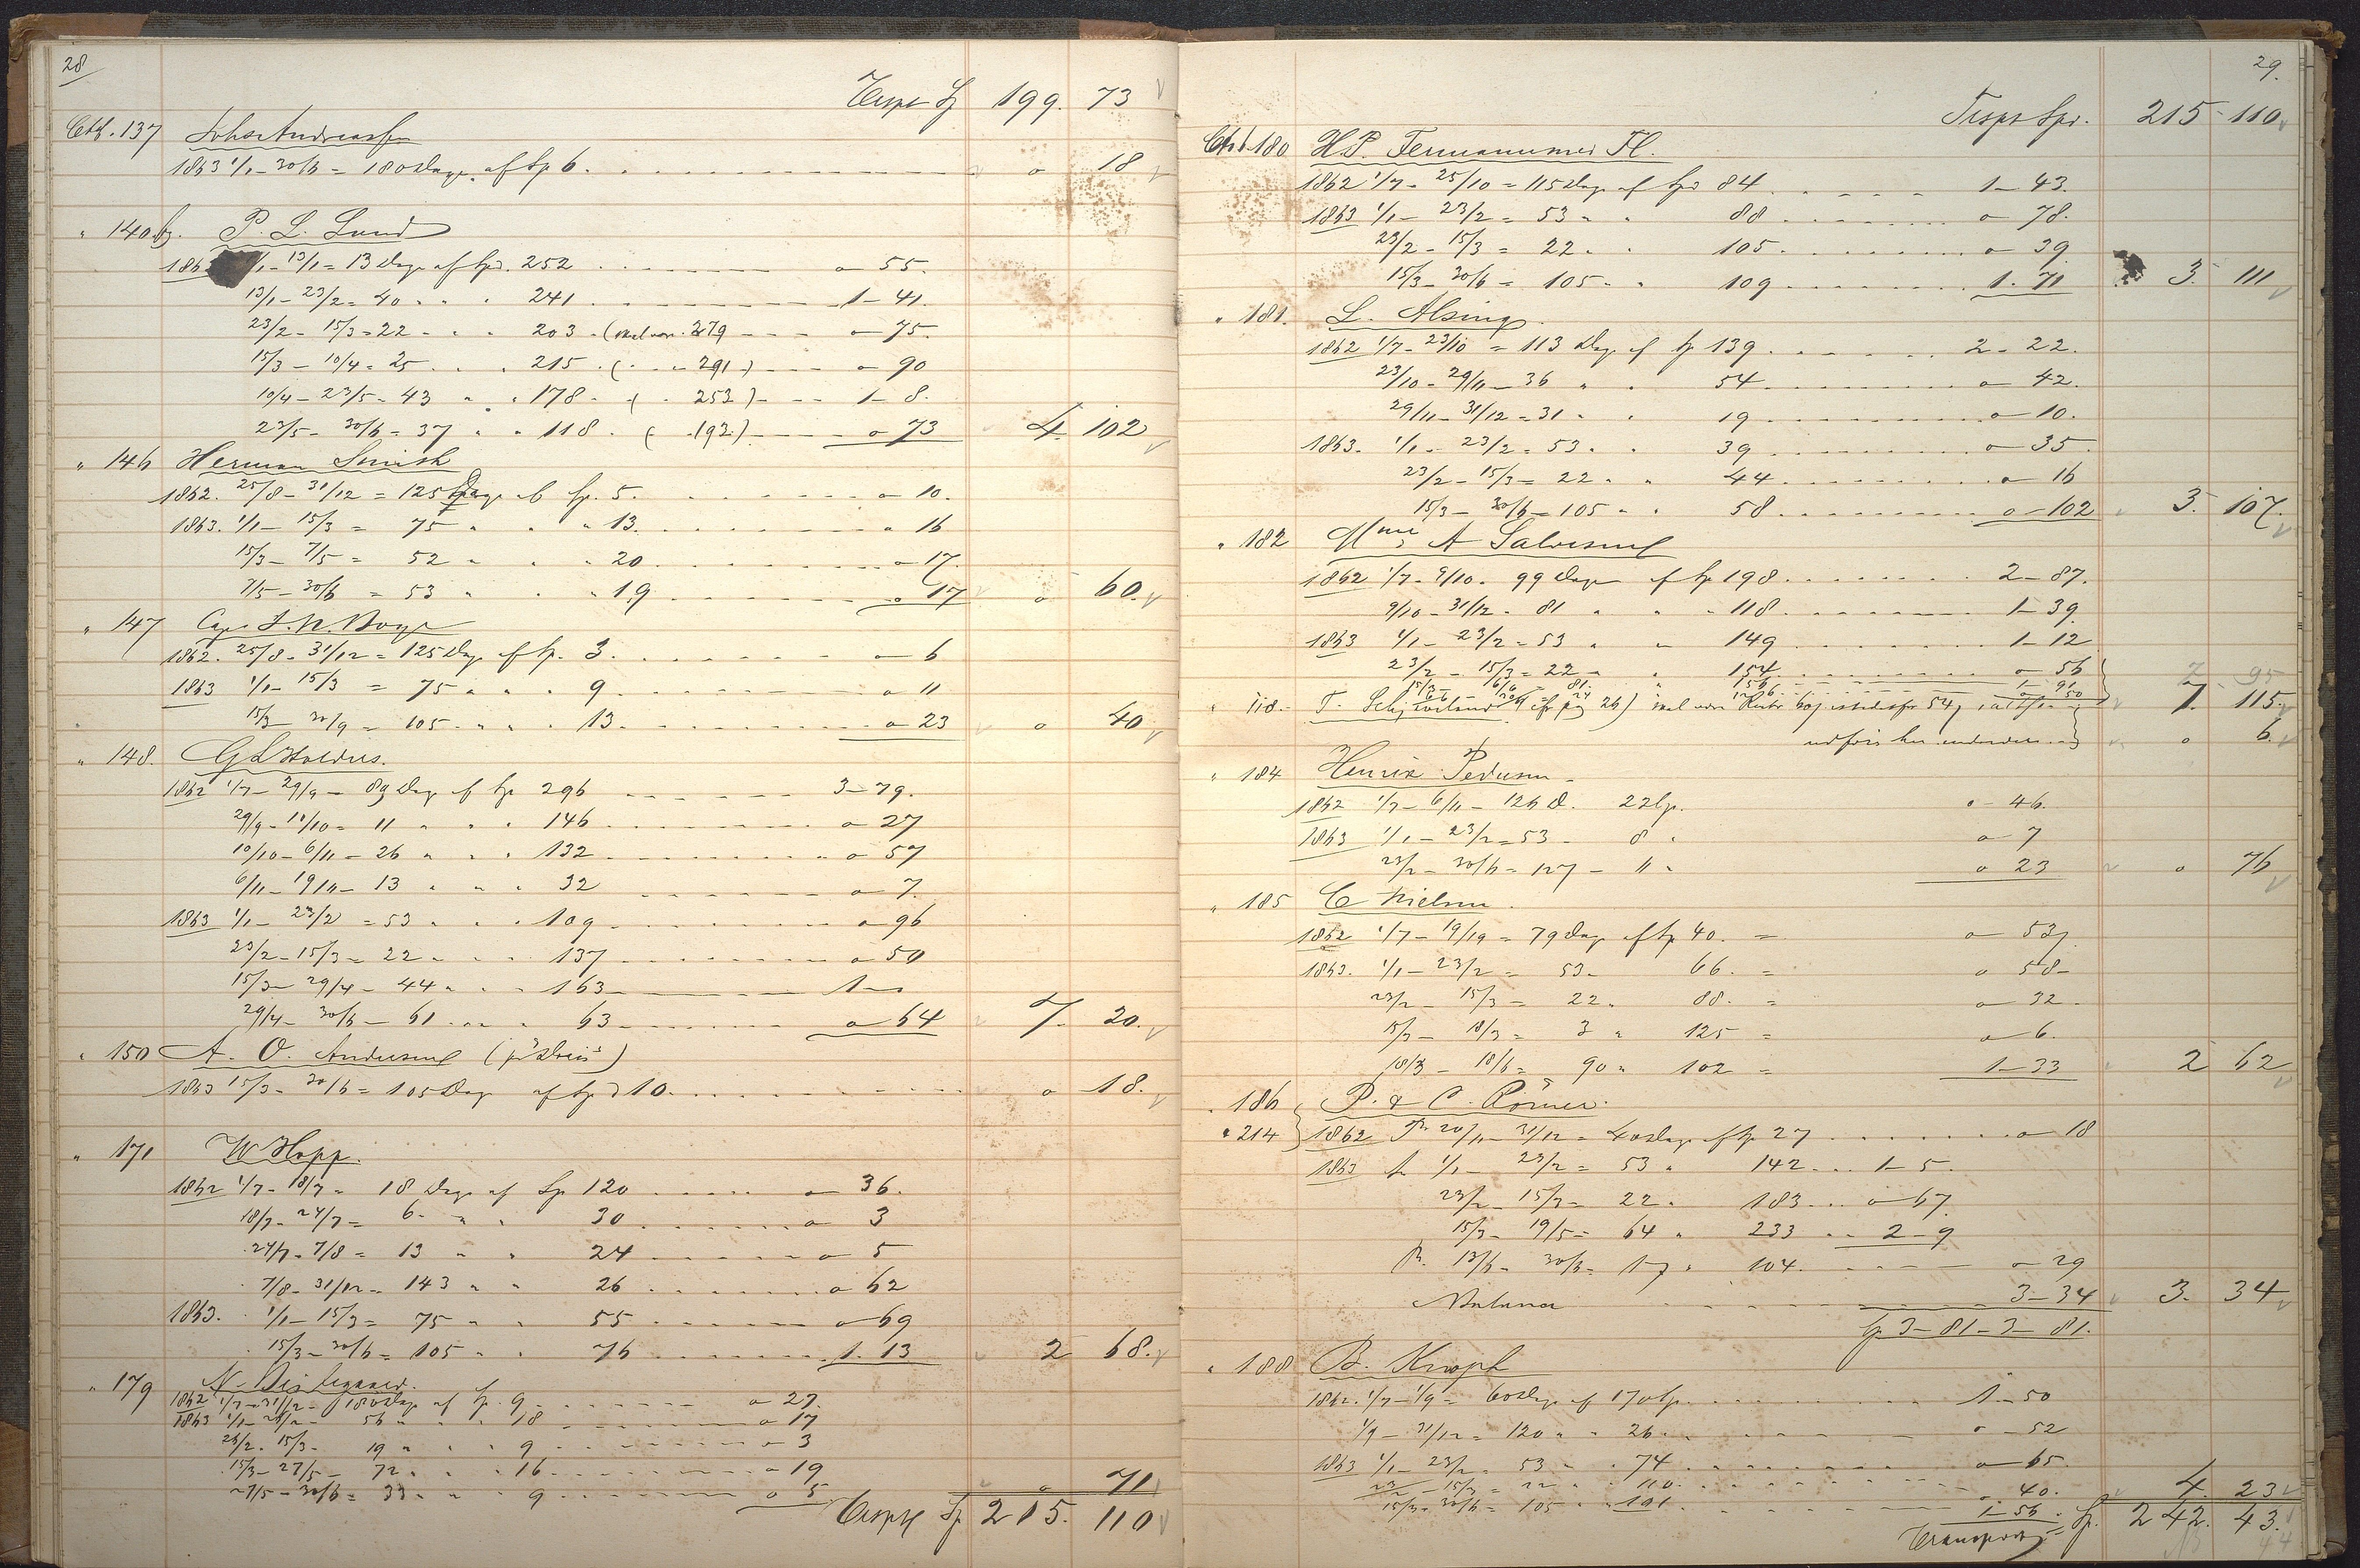 28
Transpt Sp 199. 73
Cto. 137 Johs Andreassen
1863 1/1 - 30/6 = 180 Dage af Sp 6. o 18
" 140 P. L. Lund
13/1 = 13 Dage af Spd. 252 o - 55.
13/1 - 23/2 = 40 " " 241 1 - 41.
23/2 - 15/3 = 22 " " 203 - (skal være 279 o - 75.
15/3 - 10/4 = 25 " " 215 ( " " 291 -) o - 90
10/4 - 23/5 - 43 " " 178 - ( " 253 ) - 1 - 8.
23/5 - 30/6 = 37 " " 118 - ( - 192.) o - 73 4. 102
" 146 Herman Smith
1862. 25/8 - 31/12 = 125 Dage af Sp. 5. o - 10.
1863. 1/1 - 15/3 = 75 " " " 13. o 16
15/3 - 7/5 = 52 " " " 20 o - 17.
7/5 - 30/6 = 53 " " " 19 o 17 o 60.
" 147 Cap.
1862. 25/8 - 31/12 = 125 Dag af Sp. 3. o 6
1863 1/1 - 15/3 = 75 " " " 9 o 11
15/3 30/9 = 105 " " " 13. o 23 o 40.
" 148.
1862 1/7 - 29/9 - 89 Dag af Sp 296 3 - 79.
29/9 - 10/10 = 11 " " " 146 o - 27
10/10 - 6/11 = 26 " " " 132 o 57
6/11 - 19/11 - 13 " " " 32 o - 7.
1863 1/1 - 23/2 = 53 " " " 109 o - 96
23/2 - 15/3 = 22 " " " 137 o - 50
15/3 - 29/4 - 44 " " " 163 1 - o
29/4 - 30/6 - 61 " " " 63 o 64 7. 20.
" 150 A. O. Andersen
1863 15/3 - 30/6 = 105 Dag af Spd 10. o 18.
" 171 W Hopp.
1862 1/7 - 18/7 = 18 Dage af Sp 120 o 36.
18/7 - 24/7 = 6 " " 30 o 3
24/7 - 7/8 = 13 " " 24 o 5
7/8 - 31/12 = 143 " " 26 o 62
1863. 1/1 - 15/3 = 75 " " 55 o - 69
15/3 - 30/6 = 105 " " 76 1. 13 2 68.
" 179 N.
1862 1/7 - 31/12 - 180 Dage af Sp. 9 o 27.
1863 1/1 - 26/2 - 56 " " " 18 o 17
26/2 - 15/3 - 19 " " " 9 o 3
15/3 - 27/5 - 72 " " " 16 o 19
27/5 - 30/6 = 33 " " " 9 o 5 o 71
Transpt Sp 215. 110
29.
Trspt Spd. 215 - 110
Cto 180 H. P. Fl.
1862 1/7 - 25/10 = 115 Dag af Spd 84 1 - 43.
1863 1/1 - 23/2 = 53 " " 88 o - 78.
23/2 - 15/3 = 22 " " 105 o 39
15/3 - 30/6 = 105 " " 109 1. 71 3. 111
" 181. L. Alsing
1862 1/7 - 23/10 = 113 Dag af Sp 139 2 - 22.
23/10 - 29/11 - 36 " " 54 o 42.
29/11 - 31/12 = 31 " " 19 o 10.
1863. 1/1 - 23/2 = 53 " " 39 o 35
23/2 - 15/3 = 22 " " 44 o 16
15/3 - 30/6 = 105 " " 58 o - 102 3. 107.
" 182 Mme A Salvesen
1862 1/7 - 9/10 - 99 Dage af Sp 198 2 - 87.
9/10 - 31/12 - 81 " " " 118 1 - 39
1863 1/1 - 23/2 = 53 " " 149 1 - 12
23/2 - 15/3 = 22 " " 154 o 56 7 95
15/3 - 6/6 = 81. 156 1 - 91
" 118. T. (cfr pag 26) skal være Rente 60 istedetfor 54, 7. 115
udføres her o 6.
" 184 Henrik Pedersen
1862 1/7 - 6/11 - 126 D. 22 Sp. o - 46.
1863 1/1 - 23/2 = 53 - 8 " o 7
23/2 - 30/6 = 127 - 11 " o 23 o 76
" 185 C Nielsen
1862 1/7 - 19/19 = 79 Dag af Sp 40. = o 53
1863. 1/1 - 23/2 = 53 - 66. = o 58 -
23/2 - 15/3 = 22 " 88. = o 32.
15/3 - 18/3 = 3 " 125 = o 6.
18/3 - 18/6 = 90 " 102 = 1 - 33 2 62
" 186 P. & C. Römer.
" 214 1862 20/11 - 31/12 = 40 Dage af Sp 27 o 18
1863 1/1 - 23/2 = 53 " 142 1 - 5.
23/2 - 15/3 = 22 " 183 o 67
15/3 - 19/5 = 64 " 233 2 - 9
13/6 - 30/6 = 17 " 104. o 29
Balance 3 - 34 3. 34
Sp 3 - 81 - 3 - 81.
" 188 B.
1862. 1/7 - 1/9 = 60 Dage af 170 Sp. 1 - 50
1/9 - 31/12 = 120 " " 26 o - 52
1863 1/1 - 23/2 = 53 " " 74 o 65
23/2 - 15/3 = 22 " " 110. o 40.
15/3 - 30/6 = 105 " " 101 1 - 56 4. 23
Transport Sp. 242. 43.
44